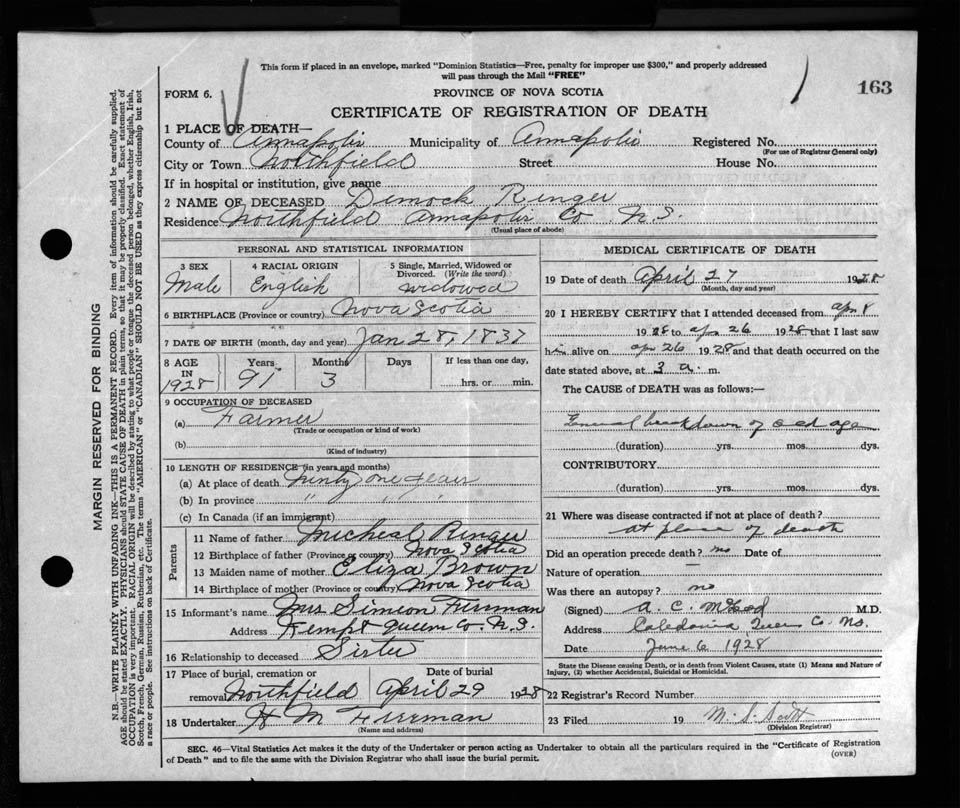 This form if placed in an envelope, marked "Dominion Statistics—Free, penalty for improper use $300," and properly addressed
will pass through the Mail "FREE"
163
FORM 6.
PROVINCE OF NOVA SCOTIA
CERTIFICATE OF REGISTRATION OF DEATH
1 PLACE OF DEATH—
County of Annapolis Municipality of Annapolis Registered No.
(For use of Registrar General only)
City or Town Northfield Street House No.
If in hospital or institution, give name
2 NAME OF DECEASED Dimock Ringer
Residence Northfield Annapolis Co N.S.
(Usual place of abode)
PERSONAL AND STATISTICAL INFORMATION
3 SEX 4 RACIAL ORIGIN 5 Single, Married, Widowed or Divorced. (Write the word)
Male English widowed
6 BIRTHPLACE (Province or country) Nova Scotia
7 DATE OF BIRTH (month, day and year) Jan 28, 1837
8 AGE IN 1928 Years 91 Months 3 Days If less than one day, hrs. or min.
9 OCCUPATION OF DECEASED
(a) Farmer
(Trade or occupation or kind of work)
(b)
(Kind of industry)
10 LENGTH OF RESIDENCE (in years and months)
(a) At place of death Ninty one years
(b) In province " " "
(c) In Canada (if an immigrant)
Parents
11 Name of father Micheal Ringer
12 Birthplace of father (Province or country) Nova Scotia
13 Maiden name of mother Eliza Brown
14 Birthplace of mother (Province or country) Nova Scotia
15 Informant's name Mrs Simeon
Address Kempt Queens Co. N.S.
16 Relationship to deceased Sister
17 Place of burial, cremation or removal Northfield Date of burial April 29 1928
18 Undertaker H M Freeman
(Name and address)
MEDICAL CERTIFICATE OF DEATH
19 Date of death April 27 1928
(Month, day and year)
20 I HEREBY CERTIFY that I attended deceased from Apr 8
1928 to Apr 26 1928 that I last saw
him alive on Apr 26 1928 and that death occurred on the
date stated above, at 3 a. m.
The CAUSE of DEATH was as follows:—
General breakdown of old age
(duration) yrs. mos. dys.
CONTRIBUTORY.
(duration) yrs. mos. dys.
21 Where was disease contracted if not at place of death?
at place of death
Did an operation precede death? no Date of
Nature of operation —
Was there an autopsy? no
(Signed) A. C. McLeod M.D.
Address Caledonia Queens Co. N.S.
Date June 6 1928
State the Disease causing Death, or in death from Violent Causes, state (1) Means and Nature of
Injury, (2) whether Accidental, Suicidal or Homicidal.
22 Registrar's Record Number
23 Filed 19 M. S. Scott
(Division Registrar)
SEC. 46—Vital Statistics Act makes it the duty of the Undertaker or person acting as Undertaker to obtain all the particulars required in the "Certificate of Registration
of Death" and to file the same with the Division Registrar who shall issue the burial permit.
(OVER)
MARGIN RESERVED FOR BINDING
N.B.—WRITE PLAINLY, WITH UNFADING INK—THIS IS A PERMANENT RECORD. Every item of information should be carefully supplied.
AGE should be stated EXACTLY. PHYSICIANS should STATE CAUSE OF DEATH in plain terms, so that it may be properly classified. Exact statement of
OCCUPATION is very important. RACIAL ORIGIN will be described by stating to what people or tongue the deceased person belonged, whether English, Irish,
Scotch, French, German, Russian, Ruthenian, etc. The terms "AMERICAN" or "CANADIAN" SHOULD NOT BE USED as they express citizenship but not
a race or people. See instructions on back of Certificate.